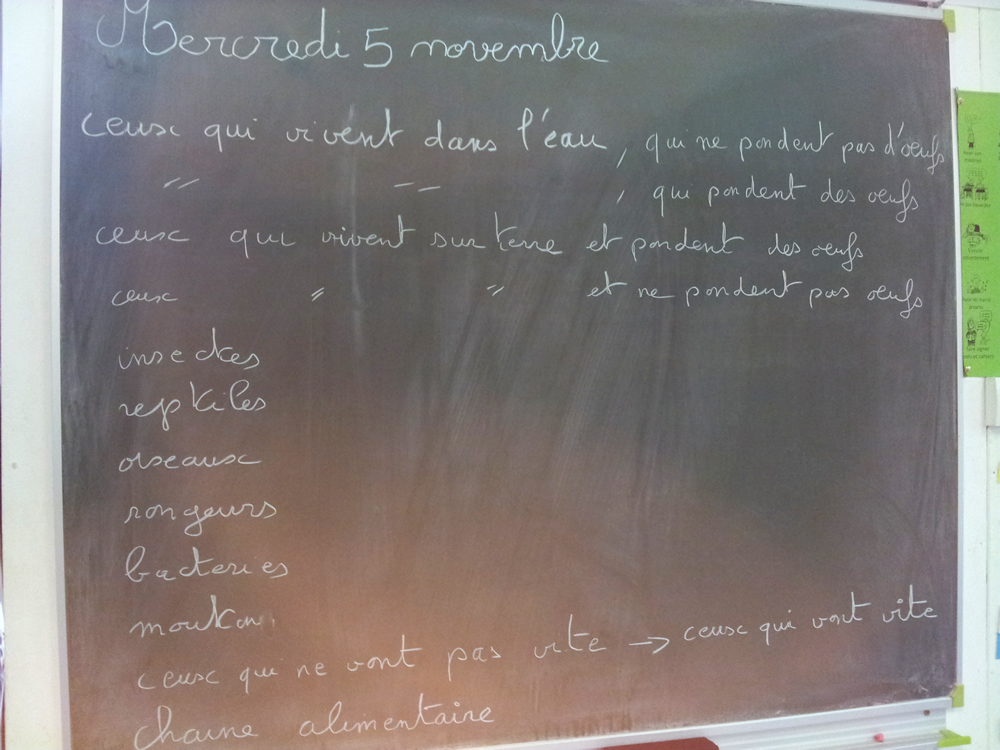 Mercredi 5 novembre
ceux qui vivent dans l'eau, qui ne pondent pas d'oeufs
" " , qui pondent des oeufs
ceux qui vivent sur terre et pondent des oeufs
ceux " " et ne pondent pas oeufs
insectes
reptiles
oiseaux
rongeurs
bacteries
mouton
ceux qui ne vont pas vite → ceux qui vont vite
chaine alimentaire